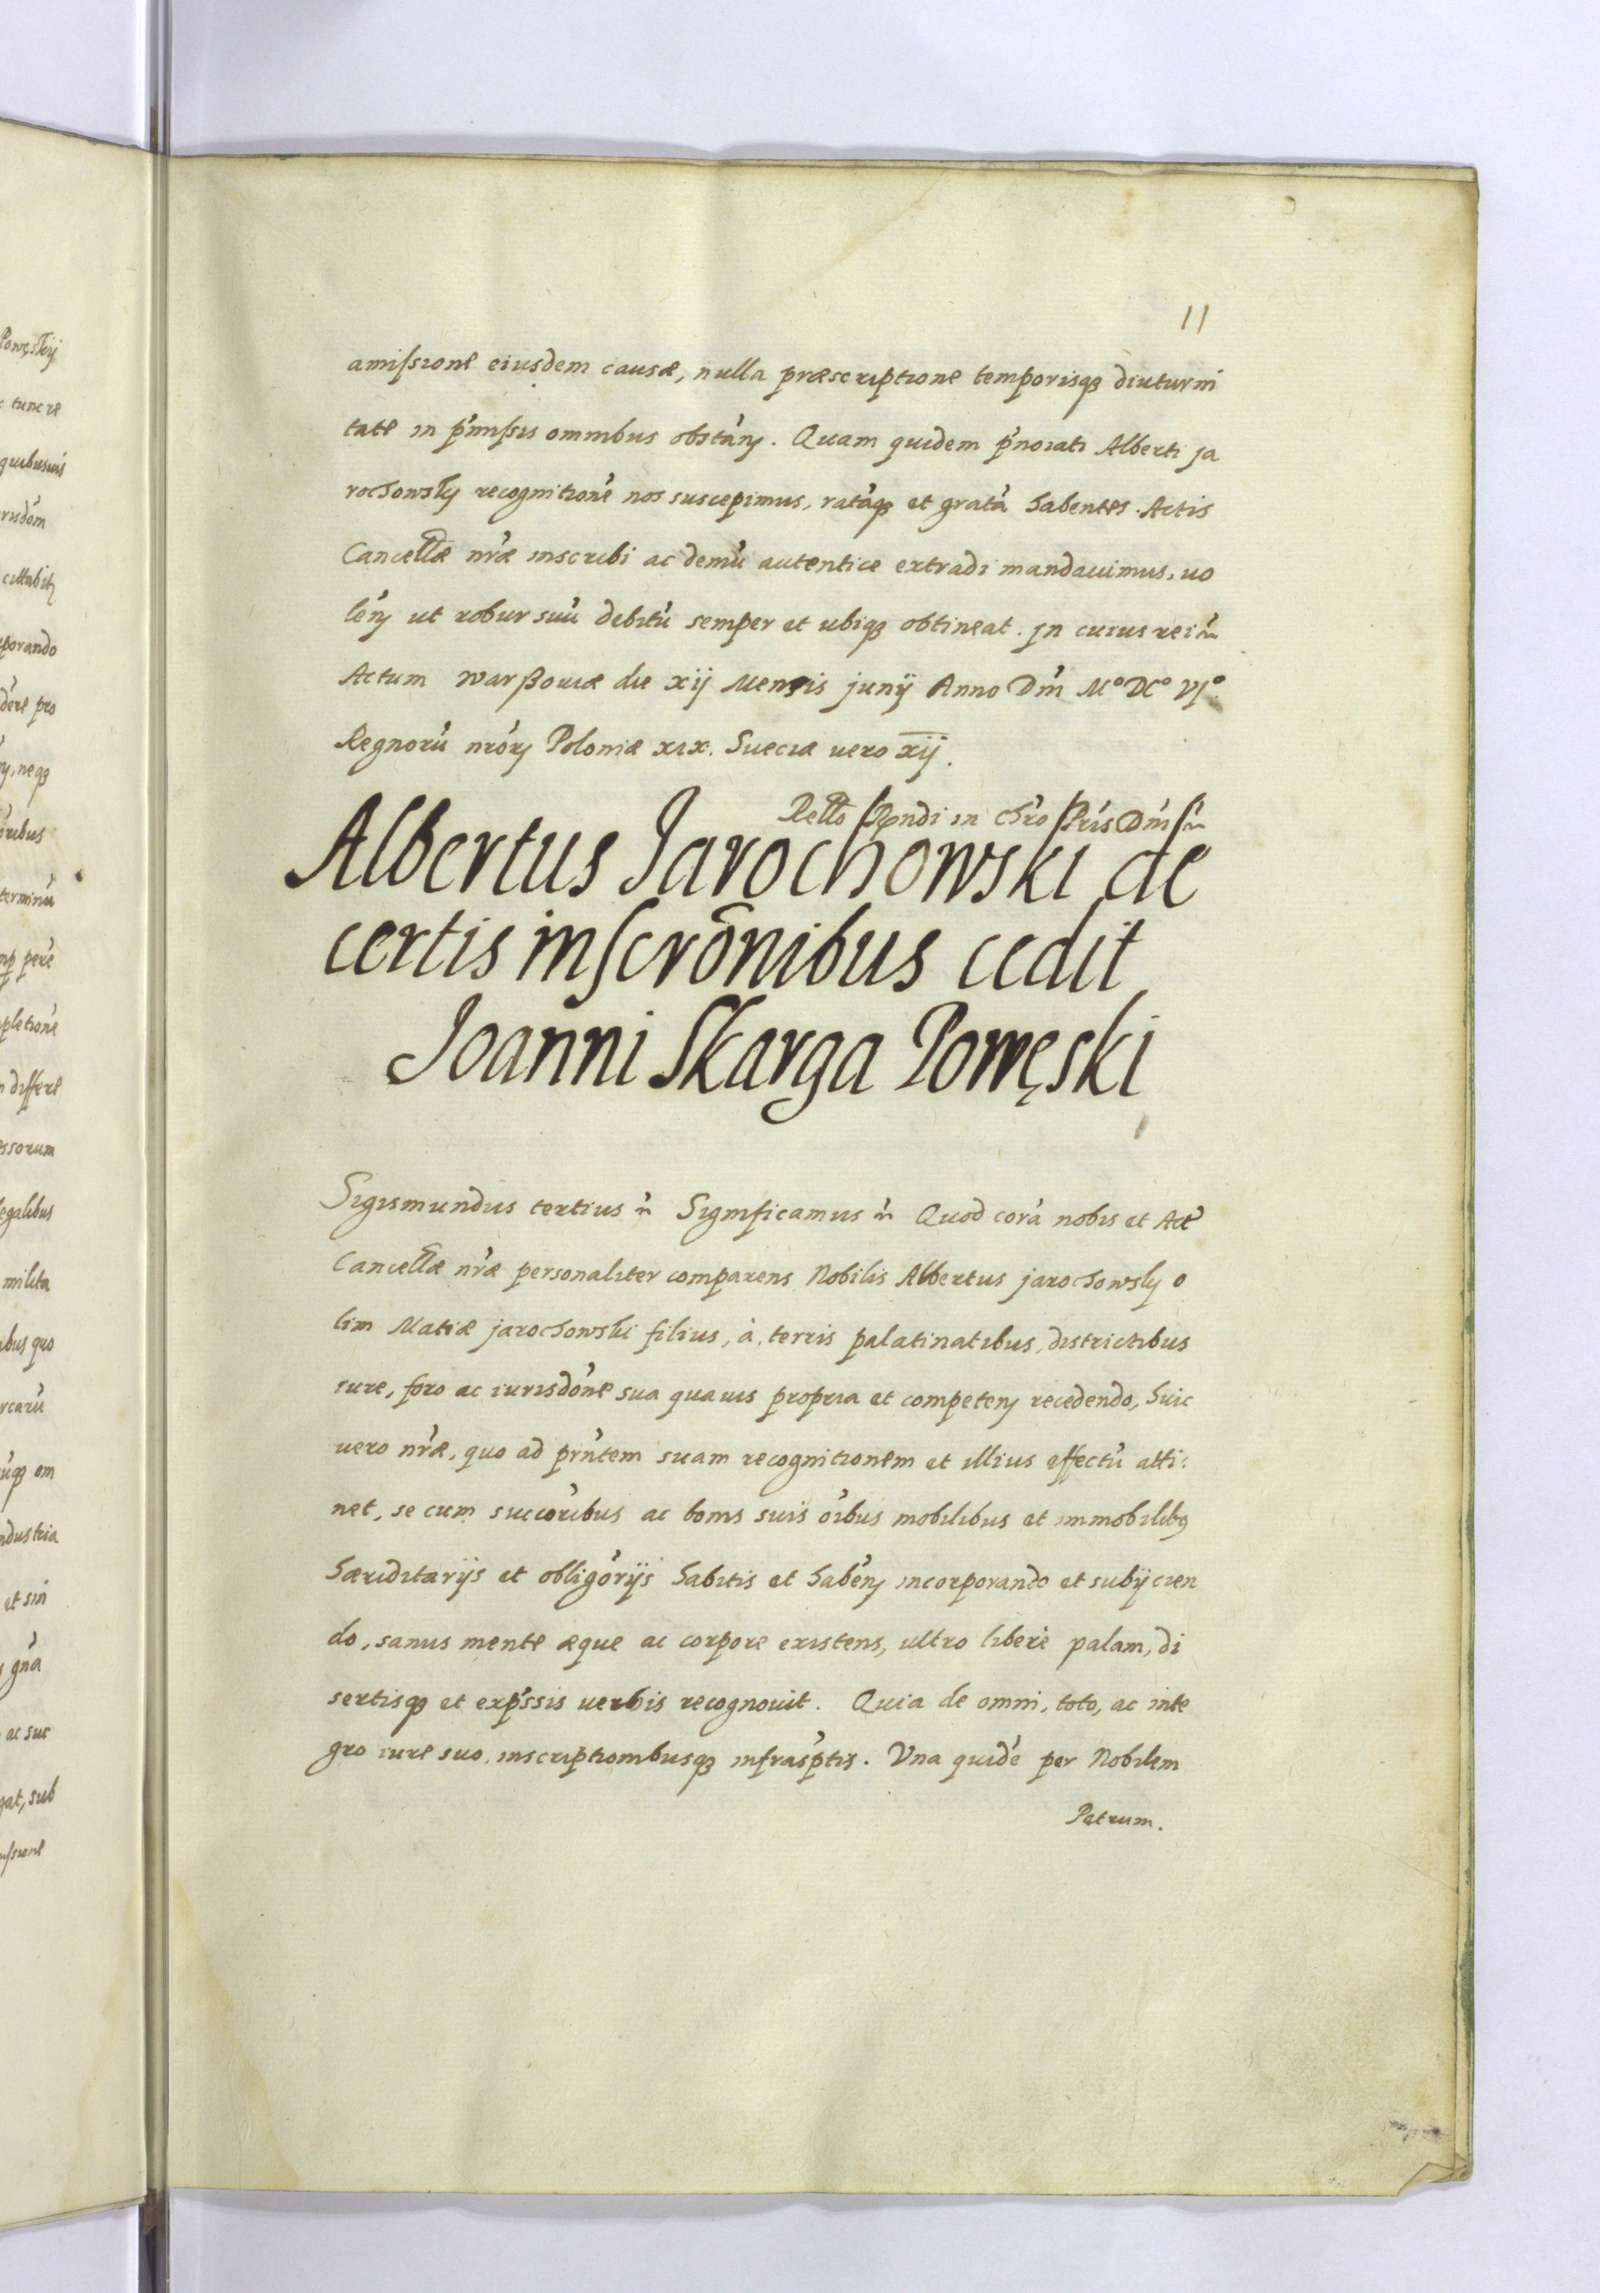 11
amissione eiusdem causæ, nulla præscriptione temporisqȝ diuturni
tate in p̓missis omnibus obstan̓. Quam quidem p̓norati Alberti Ja
rochowsky recognitione̓ nos suscepimus, rata̓qȝ et grata̓ habentes. Actis
Cancellæ nr̓æ inscribi ac demu̓ autentice extradi mandauimus, uo
len̓ ut robur suu̓ debitu̓ semper et ubiqȝ obtineat. Jn cuius rei
Actum Warßouiæ die xij Mensis Junij Anno Dni̓ M° DC° VJ°
Regnoru̓ nro̓ꝝ Poloniæ xix. Sueciæ uero xij.
Rello Rendi in Chr̓o Pr̓is Dni̓
Albertus Jarochowski de
certis inscro̅nibus cedit
Joanni Skarga Powęski
Sigismundus tertius Significamus Quod cora̓ nobis et Act̓
Cancellæ nr̓æ personaliter comparens Nobilis Albertus Jarochowsky o
lim Matiæ Jarochowski filius, à terris palatinatibus, districtibus
iure, foro ac iurisdo̓ne sua quauis propria et competen̓ recedendo, huic
uero nr̓æ, quo ad prn̓tem suam recognitionem et illius effectu̓ atti:
net, se cum succo̓ribus ac bonis suis o̓ibus mobilibus et immobilibꝯ
hæriditarijs et obligo̓rijs habitis et habe̓n incorporando et subijcien
do, sanus mente æque ac corpore existens, ultro liberè palam, di
sertisqȝ et exp̓ssis uerbis recognouit. Quia de omni, toto, ac inte
gro iure suo, inscriptionibusqȝ infrasp̓tis. Vna quide̓ per Nobilem
Petrum.